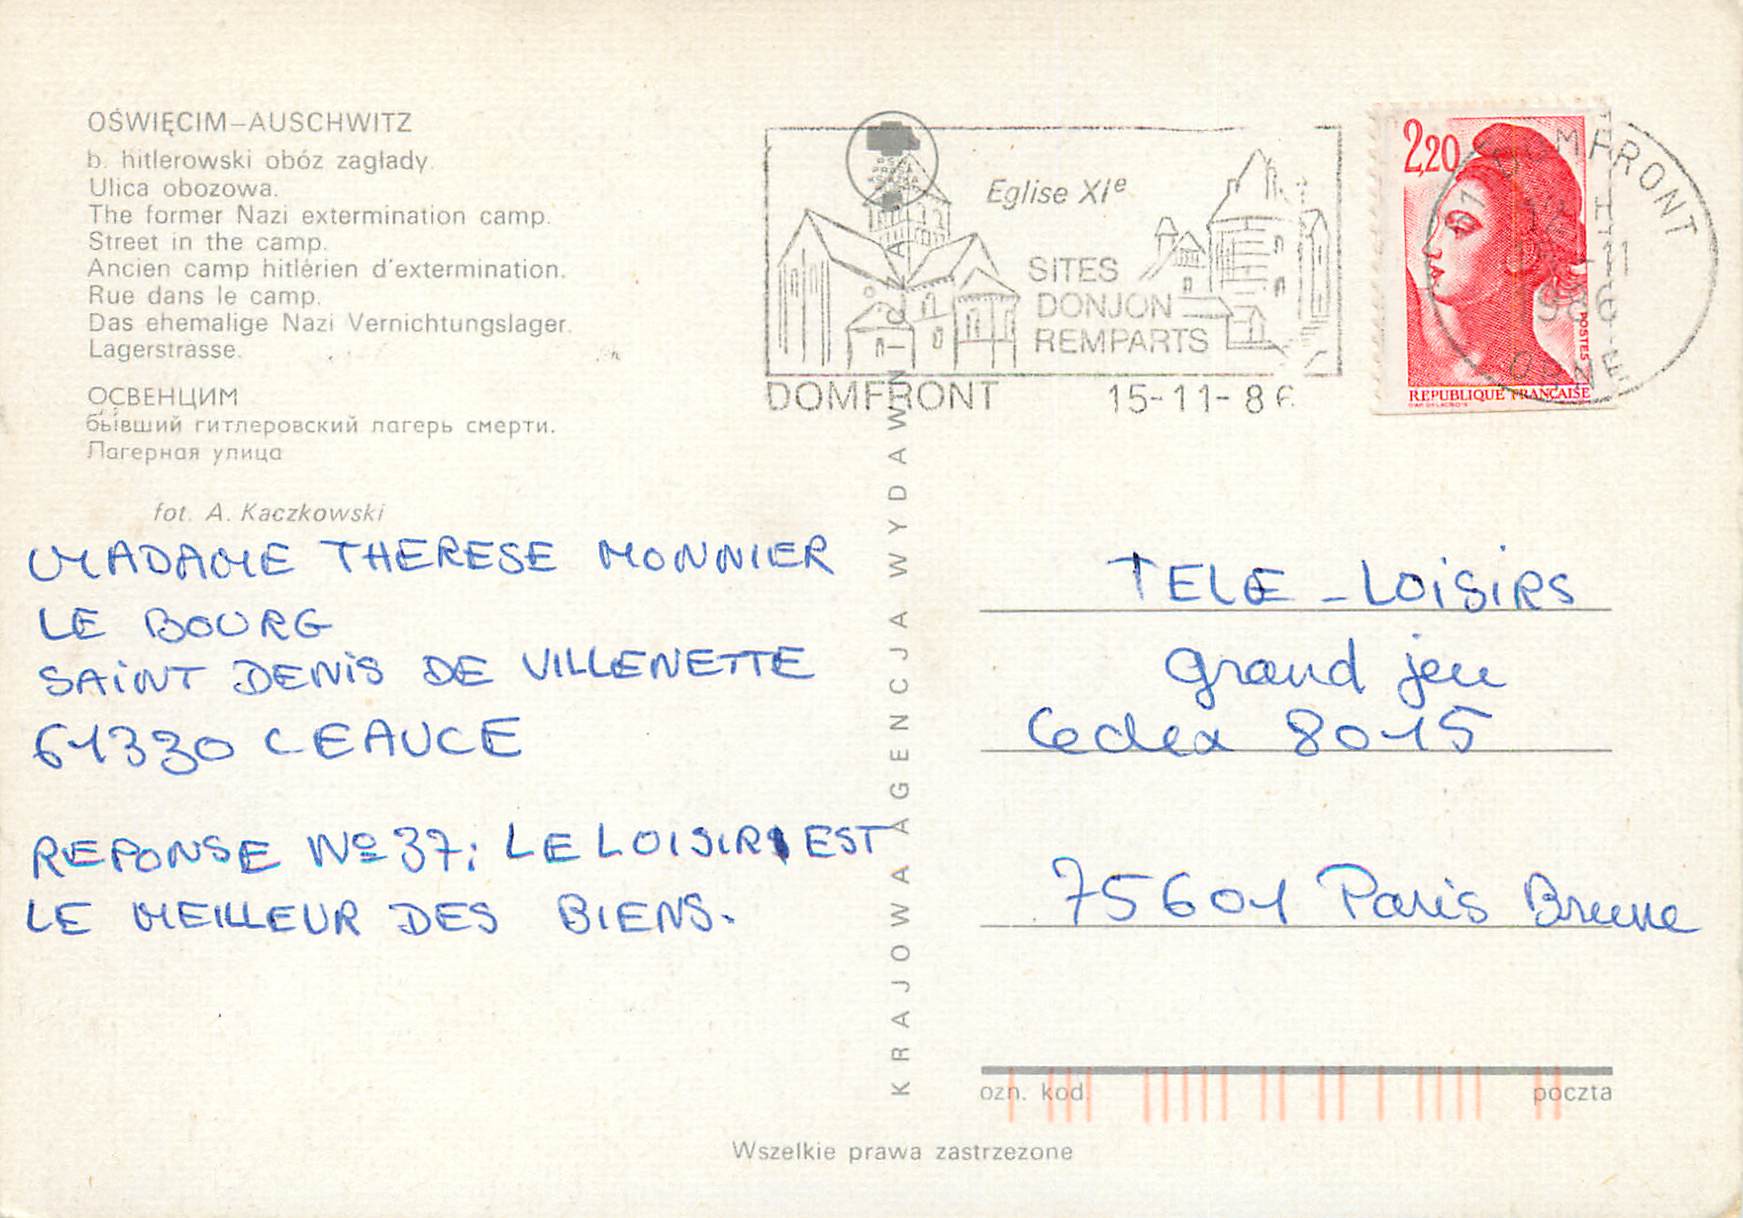 OŚWIĘCIM–AUSCHWITZ
b. hitlerowski obóz zagłady.
Ulica obozowa.
The former Nazi extermination camp.
Street in the camp.
Ancien camp hitlérien d'extermination.
Rue dans le camp.
Das ehemalige Nazi Vernichtungslager.
Lagerstrasse.
ОСВЕНЦИМ
бывший гитлеровский лагерь смерти.
Лагерная улица
fot. A. Kaczkowski
MADAME THERESE MONNIER
LE BOURG
SAINT DENIS DE VILLENETTE
61330 CEAUCE
REPONSE Nº 37: LE LOISIR EST
LE MEILLEUR DES BIENS.
KRAJOWA AGENCJA WYDAWNICZA
Eglise XIe
SITES
DONJON
REMPARTS
DOMFRONT 15-11-86
2,20
POSTES
REPUBLIQUE FRANÇAISE
61 DOMFRONT
12 H
-11
1986
ORNE
TELE - LOISIRS
grand jeu
Cedex 8015
75601 Paris Brune
ozn. kod. poczta
Wszelkie prawa zastrzezone